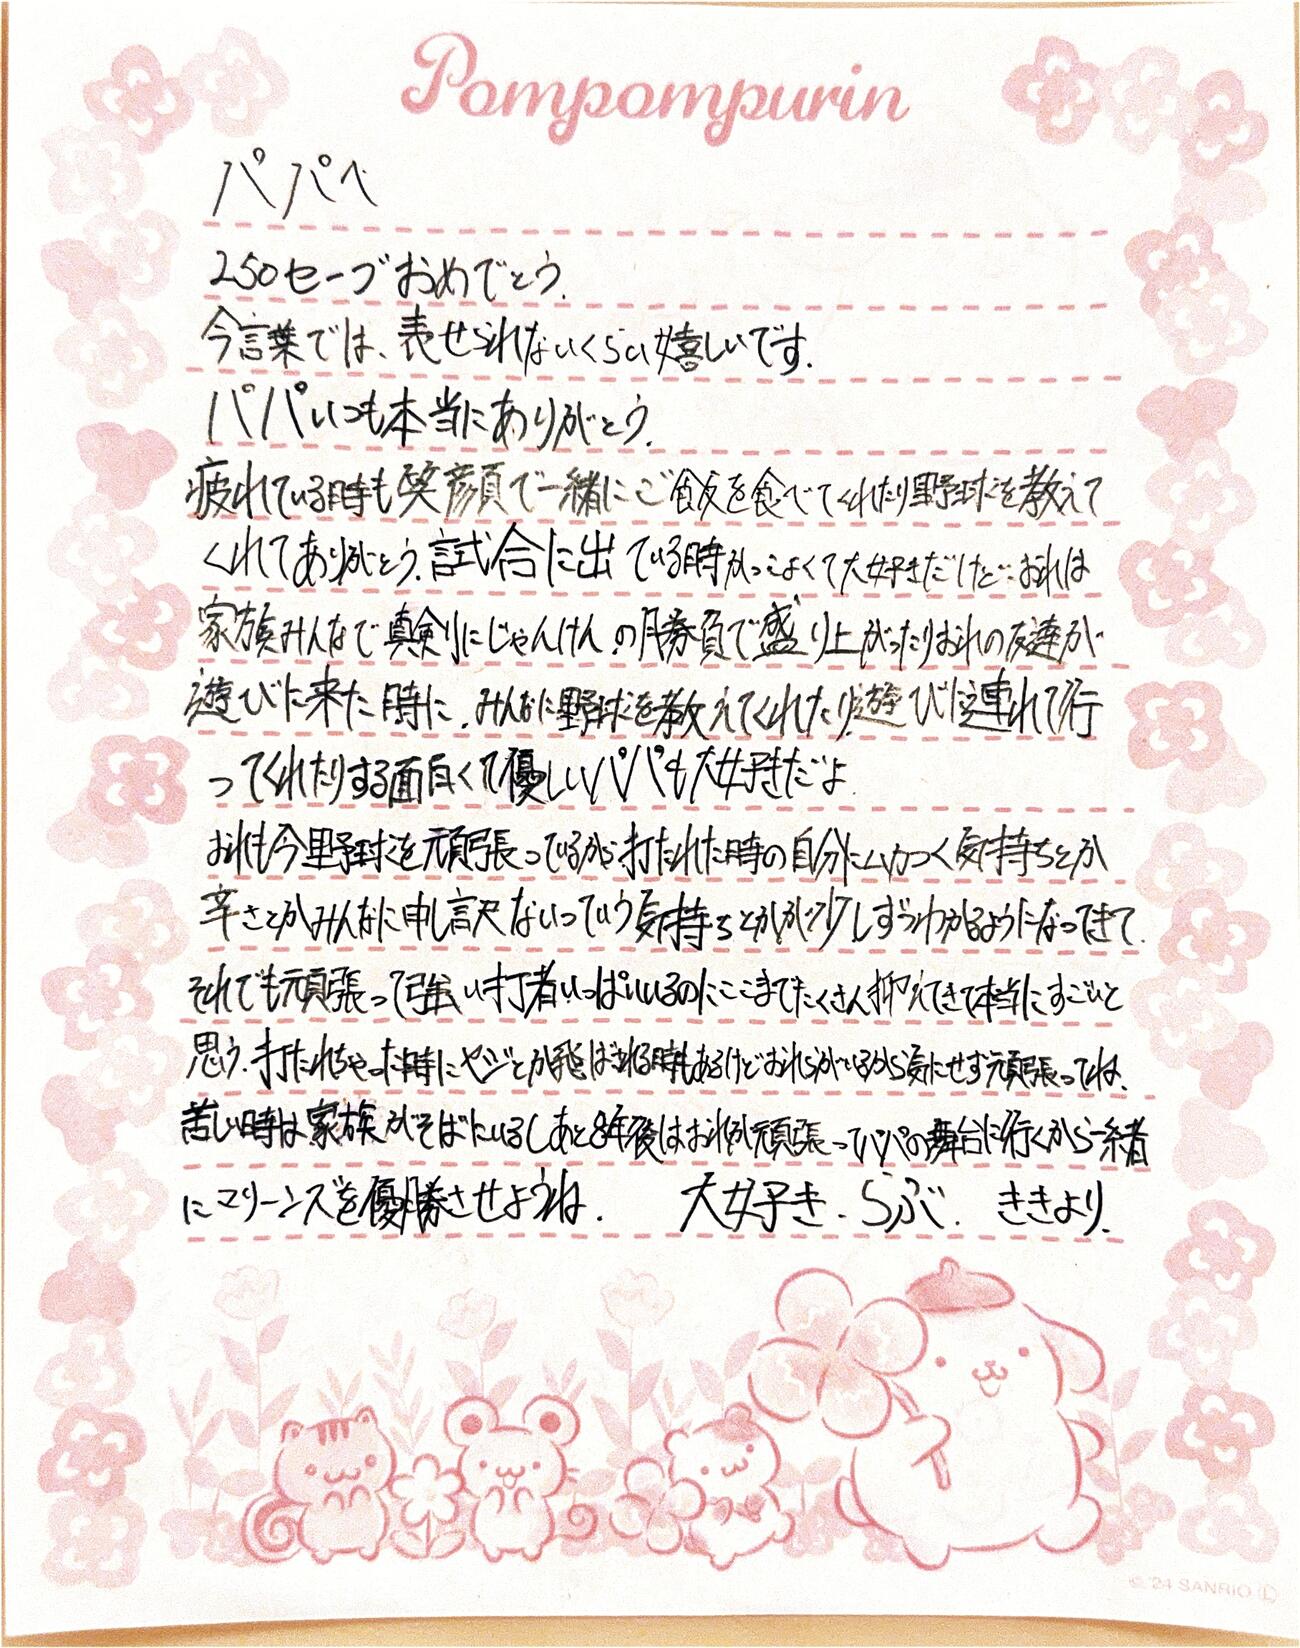 Pompompurin
パパへ
250セーブおめでとう。
今言葉では、表せられないくらい嬉しいです。
パパいつも本当にありがとう。
疲れている時も笑顔で一緒にご飯を食べてくれたり野球を教えて
くれてありがとう。試合に出ている時かっこよくて大好きだけど、おれは
家族みんなで真剣にじゃんけんの勝負で盛り上がったりおれの友達が
遊びに来た時に、みんなに野球を教えてくれたり、遊びに連れて行
ってくれたりする面白くて優しいパパも大好きだよ
おれも今野球を頑張っているから打たれた時の自分にムカつく気持ちとか
辛さとかみんなに申し訳ないっていう気持ちとかが少しずつわかるようになってきて、
それでも頑張って強い打者いっぱいいるのにここまでたくさん抑えてきて本当にすごいと
思う。打たれちゃった時にヤジとか飛ばされる時もあるけどおれらがいるから気にせず頑張ってね、
苦しい時は家族がそばにいるしあと8年後はおれが頑張ってパパの舞台に行くから一緒
にマリーンズを優勝させようね。 大好き。らぶ。 ききより。
© '24 SANRIO Ⓛ